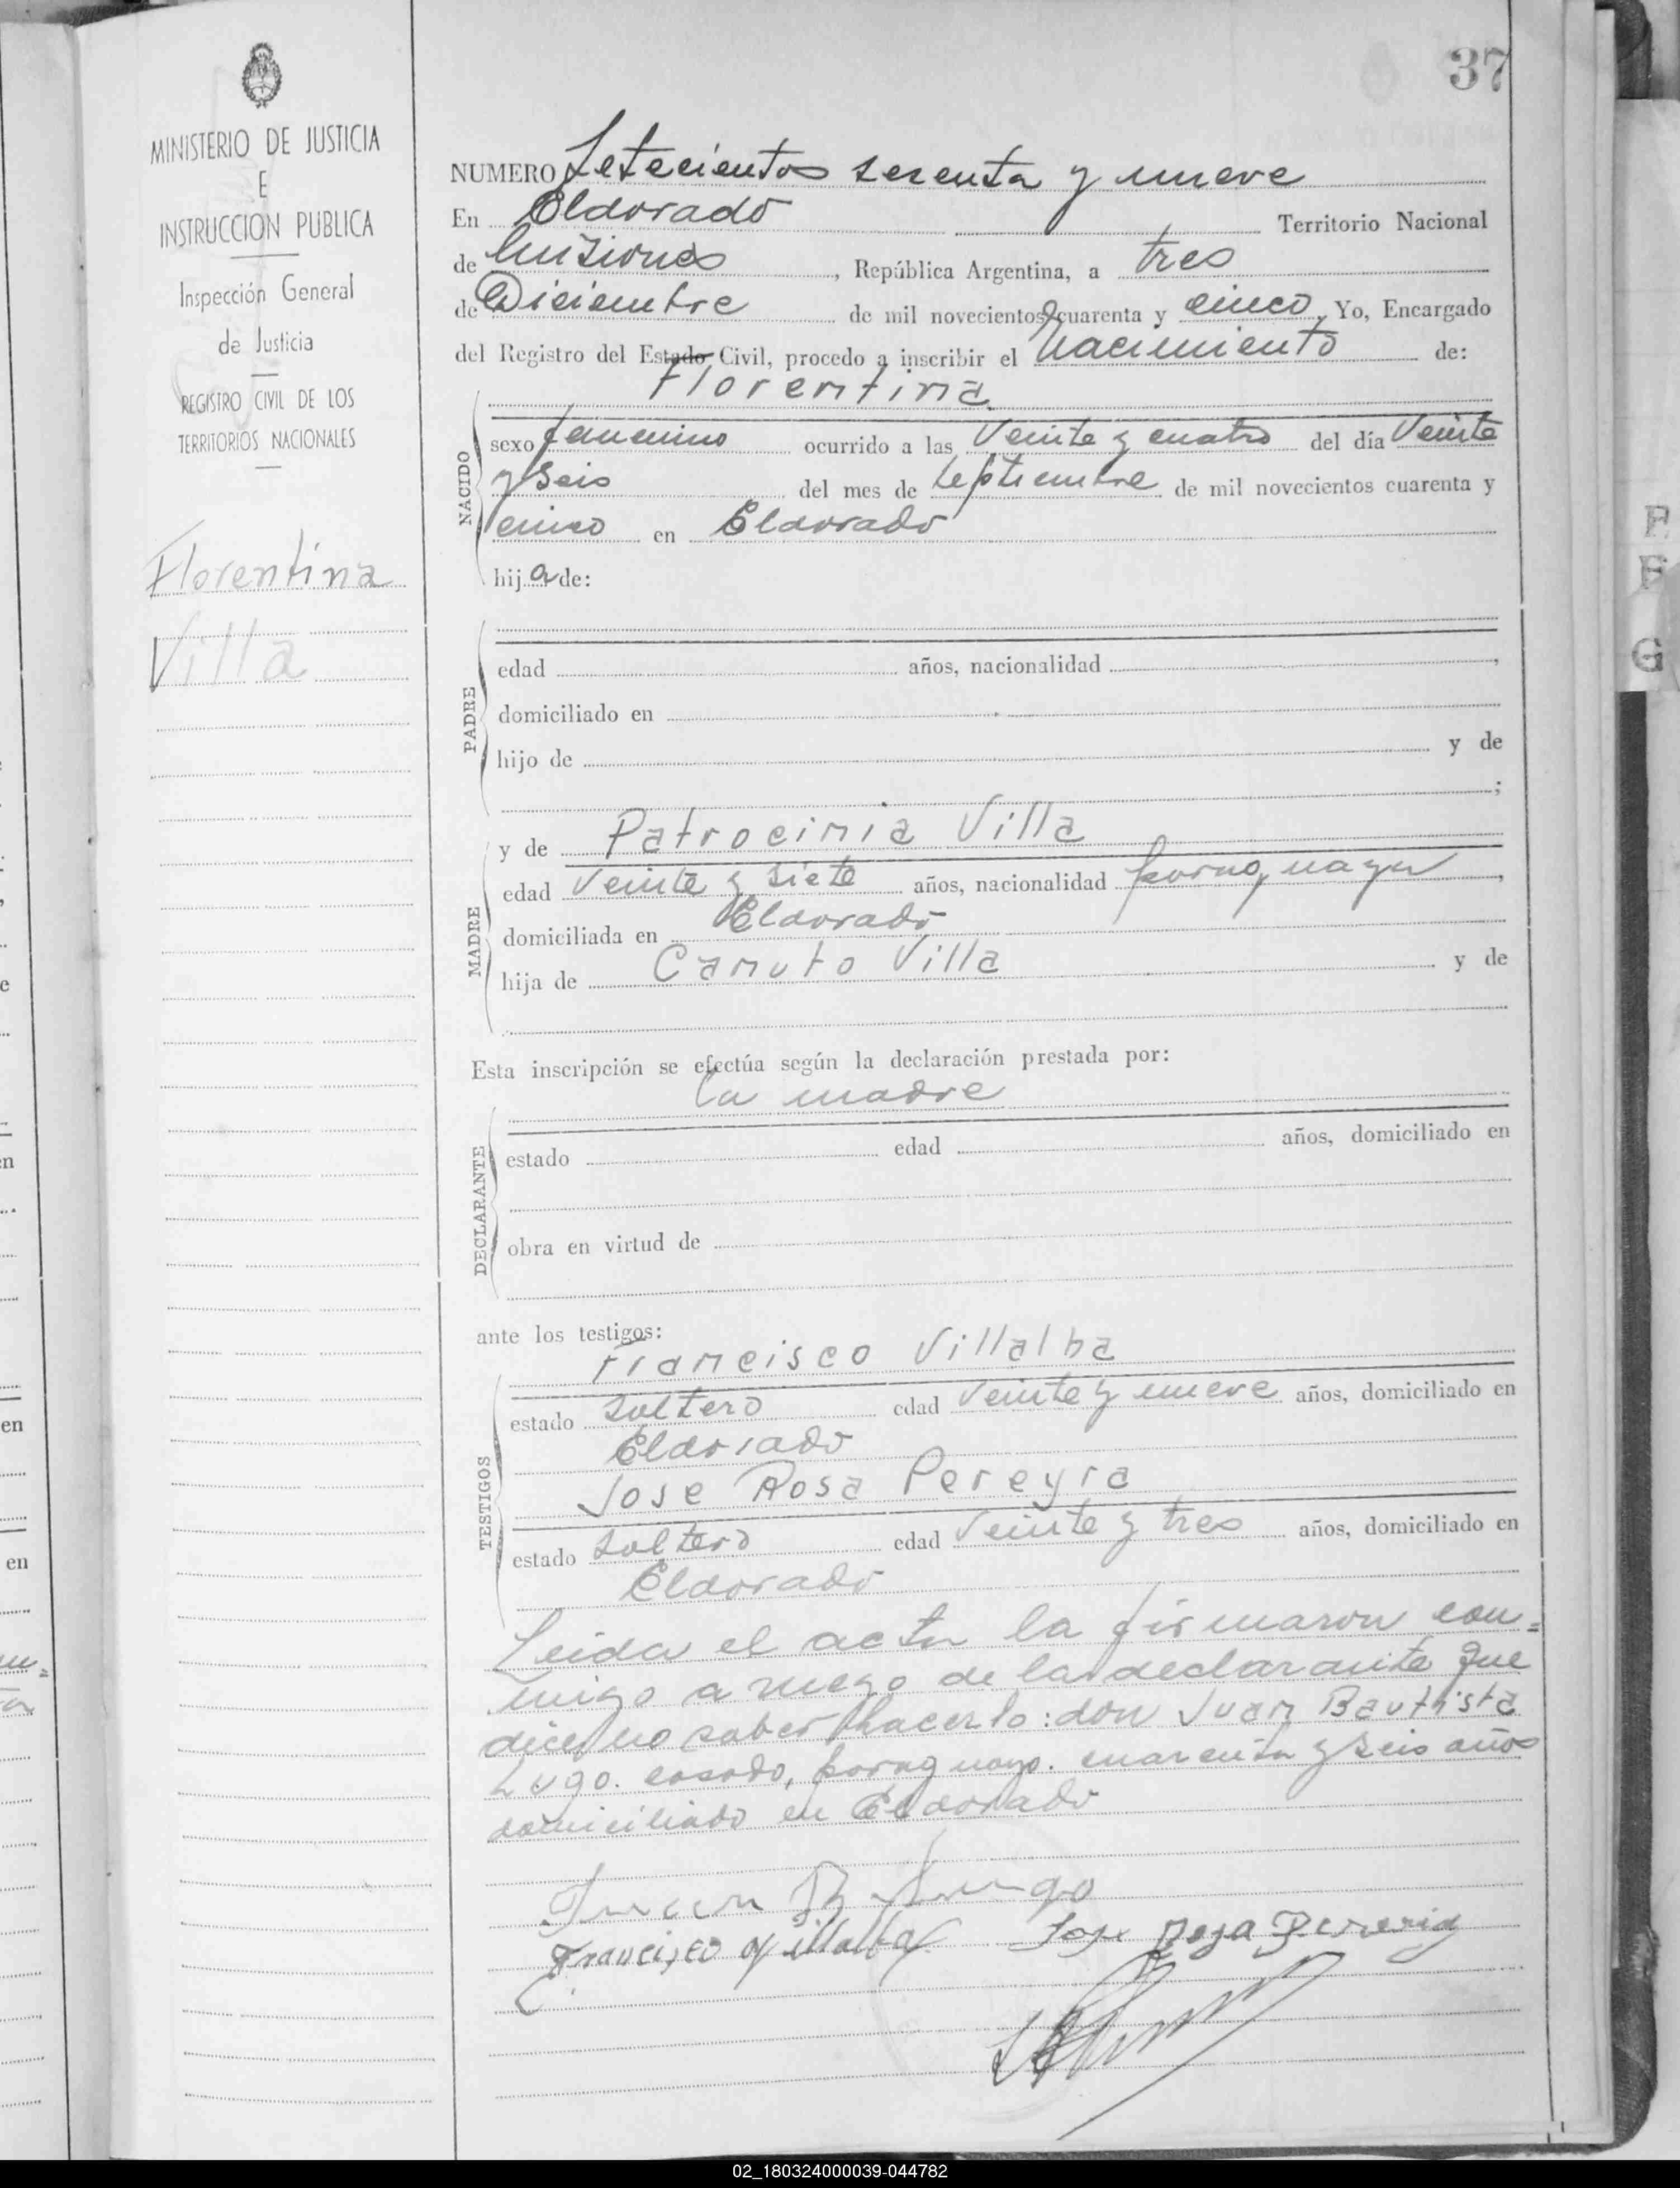 37
MINISTERIO DE JUSTICIA
E
INSTRUCCION PUBLICA
Inspección General
de Justicia
REGISTRO CIVIL DE LOS
TERRITORIOS NACIONALES
Florentina
Villa
NUMERO Setecientos sesenta y nueve
En Eldorado Territorio Nacional
de Misiones, República Argentina, a tres
de Diciembre de mil novecientos cuarenta y cinco, Yo, Encargado
del Registro del Estado Civil, procedo a inscribir el Nacimiento de:
Florentina
NACIDO
sexo femenino ocurrido a las Veinte y cuatro del día Veinte
y seis del mes de septiembre de mil novecientos cuarenta y
cinco en Eldorado
hija de:
PADRE
edad años, nacionalidad ,
domiciliado en
hijo de y de
;
MADRE
y de Patrocinia Villa
edad Veinte y siete años, nacionalidad paraguaya,
domiciliada en Eldorado
hija de Canuto Villa y de
Esta inscripción se efectúa según la declaración prestada por:
La madre
DECLARANTE
estado edad años, domiciliado en
obra en virtud de
ante los testigos:
Francisco Villalba
TESTIGOS
estado soltero edad Veinte y nueve años, domiciliado en
Eldorado
Jose Rosa Pereyra
estado soltero edad Veinte y tres años, domiciliado en
Eldorado
Leida el acta la firmaron con=
migo a ruego de la declarante que
dice no saber hacerlo: don Juan Bautista
Lugo. casado, paraguayo. cuarenta y seis años
domiciliado en Eldorado
Juan B Lugo
Francisco Villalba Jose Rosa Pereria
02_180324000039-044782